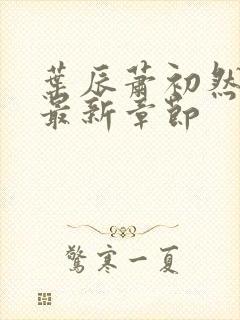 葉辰蕭初然
最新章節
驚寒一夏